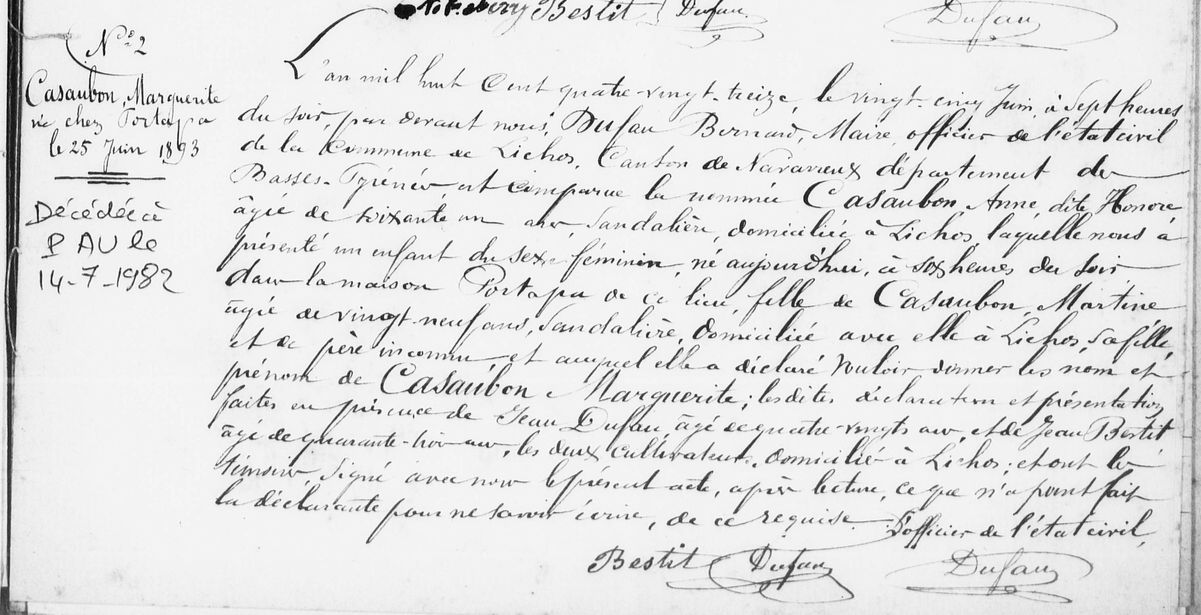 Bestit Dufau Dufau
N° 2
Casaubon, Marguerite
née chez Portapa
le 25 Juin 1893
Décédée à
PAU le
14-7-1982
L'an mil huit cent quatre-vingt-treize, le vingt-cinq Juin, à Sept heures
du soir, par devant nous, Dufau Bernard, Maire, officier de l'état civil
de la Commune de Lichos, Canton de Navarrenx département des
Basses-Pyrénées est comparue la nommée Casaubon Anne, dite Honoré
âgée de soixante un ans, Sandalière, domiciliée à Lichos, laquelle nous a
présenté un enfant du sexe féminin, né aujourd'hui, à six heures du soir
dans la maison Portapa de ce lieu, fille de Casaubon, Martine
âgée de vingt-neuf ans, Sandalière, domiciliée avec elle à Lichos, sa fille,
et de père inconnu et auquel elle a déclaré vouloir donner les nom et
prénom de Casaubon Marguerite; les dites déclaration et présentation
faites en présence de Jean Dufau âgé de quatre-vingts ans, et de Jean Bestit
âgé de quarante-trois ans, les deux cultivateurs, domiciliés à Lichos; et ont les
témoins, signé avec nous le présent acte, après lecture, ce que n'a point fait
la déclarante pour ne savoir écrire, de ce requise. L'officier de l'état civil,
Bestit Dufau Dufau